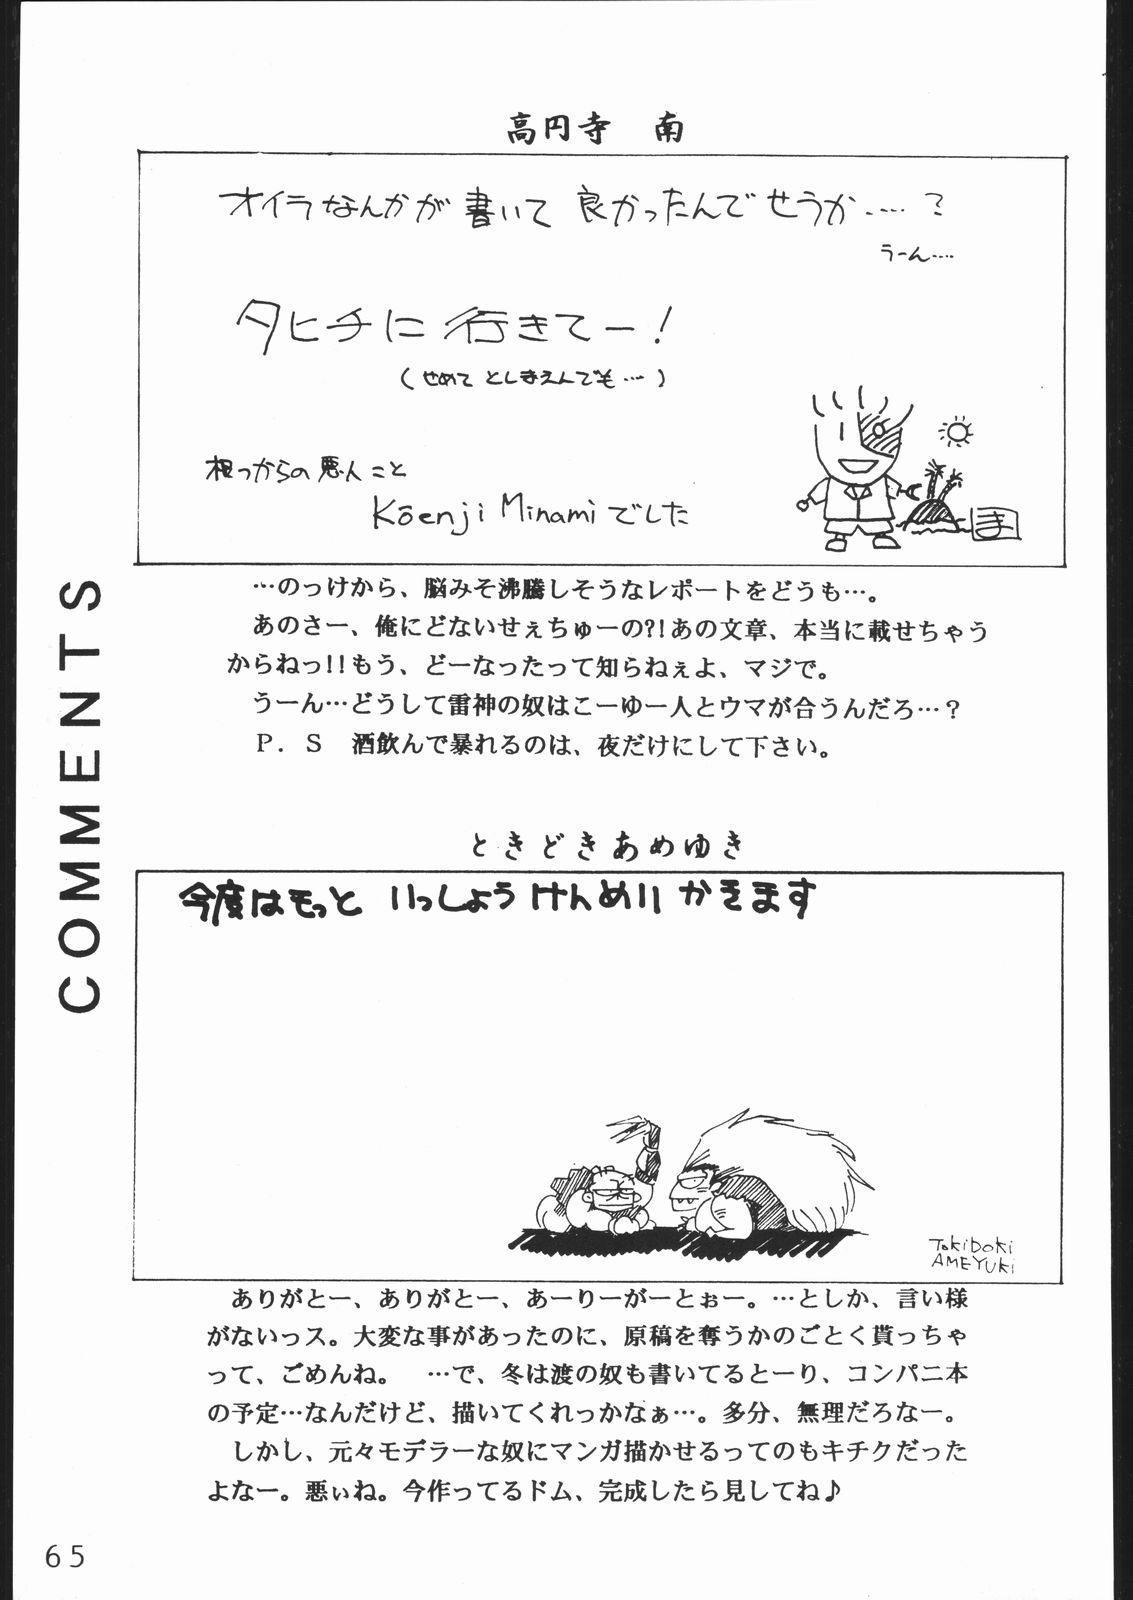 高円寺　南
オイラなんかが 書いて 良かったんで せうか……?
うーん….
タヒチに 行きてー!
( せめて としまえんでも… )
根っからの 悪人こと
Kōenji Minamiでした
ま
…のっけから、脳みそ沸騰しそうなレポートをどうも…。
あのさー、俺にどないせぇちゅーの?!あの文章、本当に載せちゃう
からねっ!!もう、どーなったって知らねぇよ、マジで。
うーん…どうして雷神の奴はこーゆー人とウマが合うんだろ…?
P. S　酒飲んで暴れるのは、夜だけにして下さい。
COMMENTS
ときどきあめゆき
今度はもっと いっしょうけんめい かきます
TokiDoki
AMEYUKi
ありがとー、ありがとー、あーりーがーとぉー。…としか、言い様
がないっス。大変な事があったのに、原稿を奪うかのごとく貰っちゃ
って、ごめんね。　…で、冬は渡の奴も書いてるとーり、コンパニ本
の予定…なんだけど、描いてくれっかなぁ…。多分、無理だろなー。
しかし、元々モデラーな奴にマンガ描かせるってのもキチクだった
よなー。悪ぃね。今作ってるドム、完成したら見してね♪
65